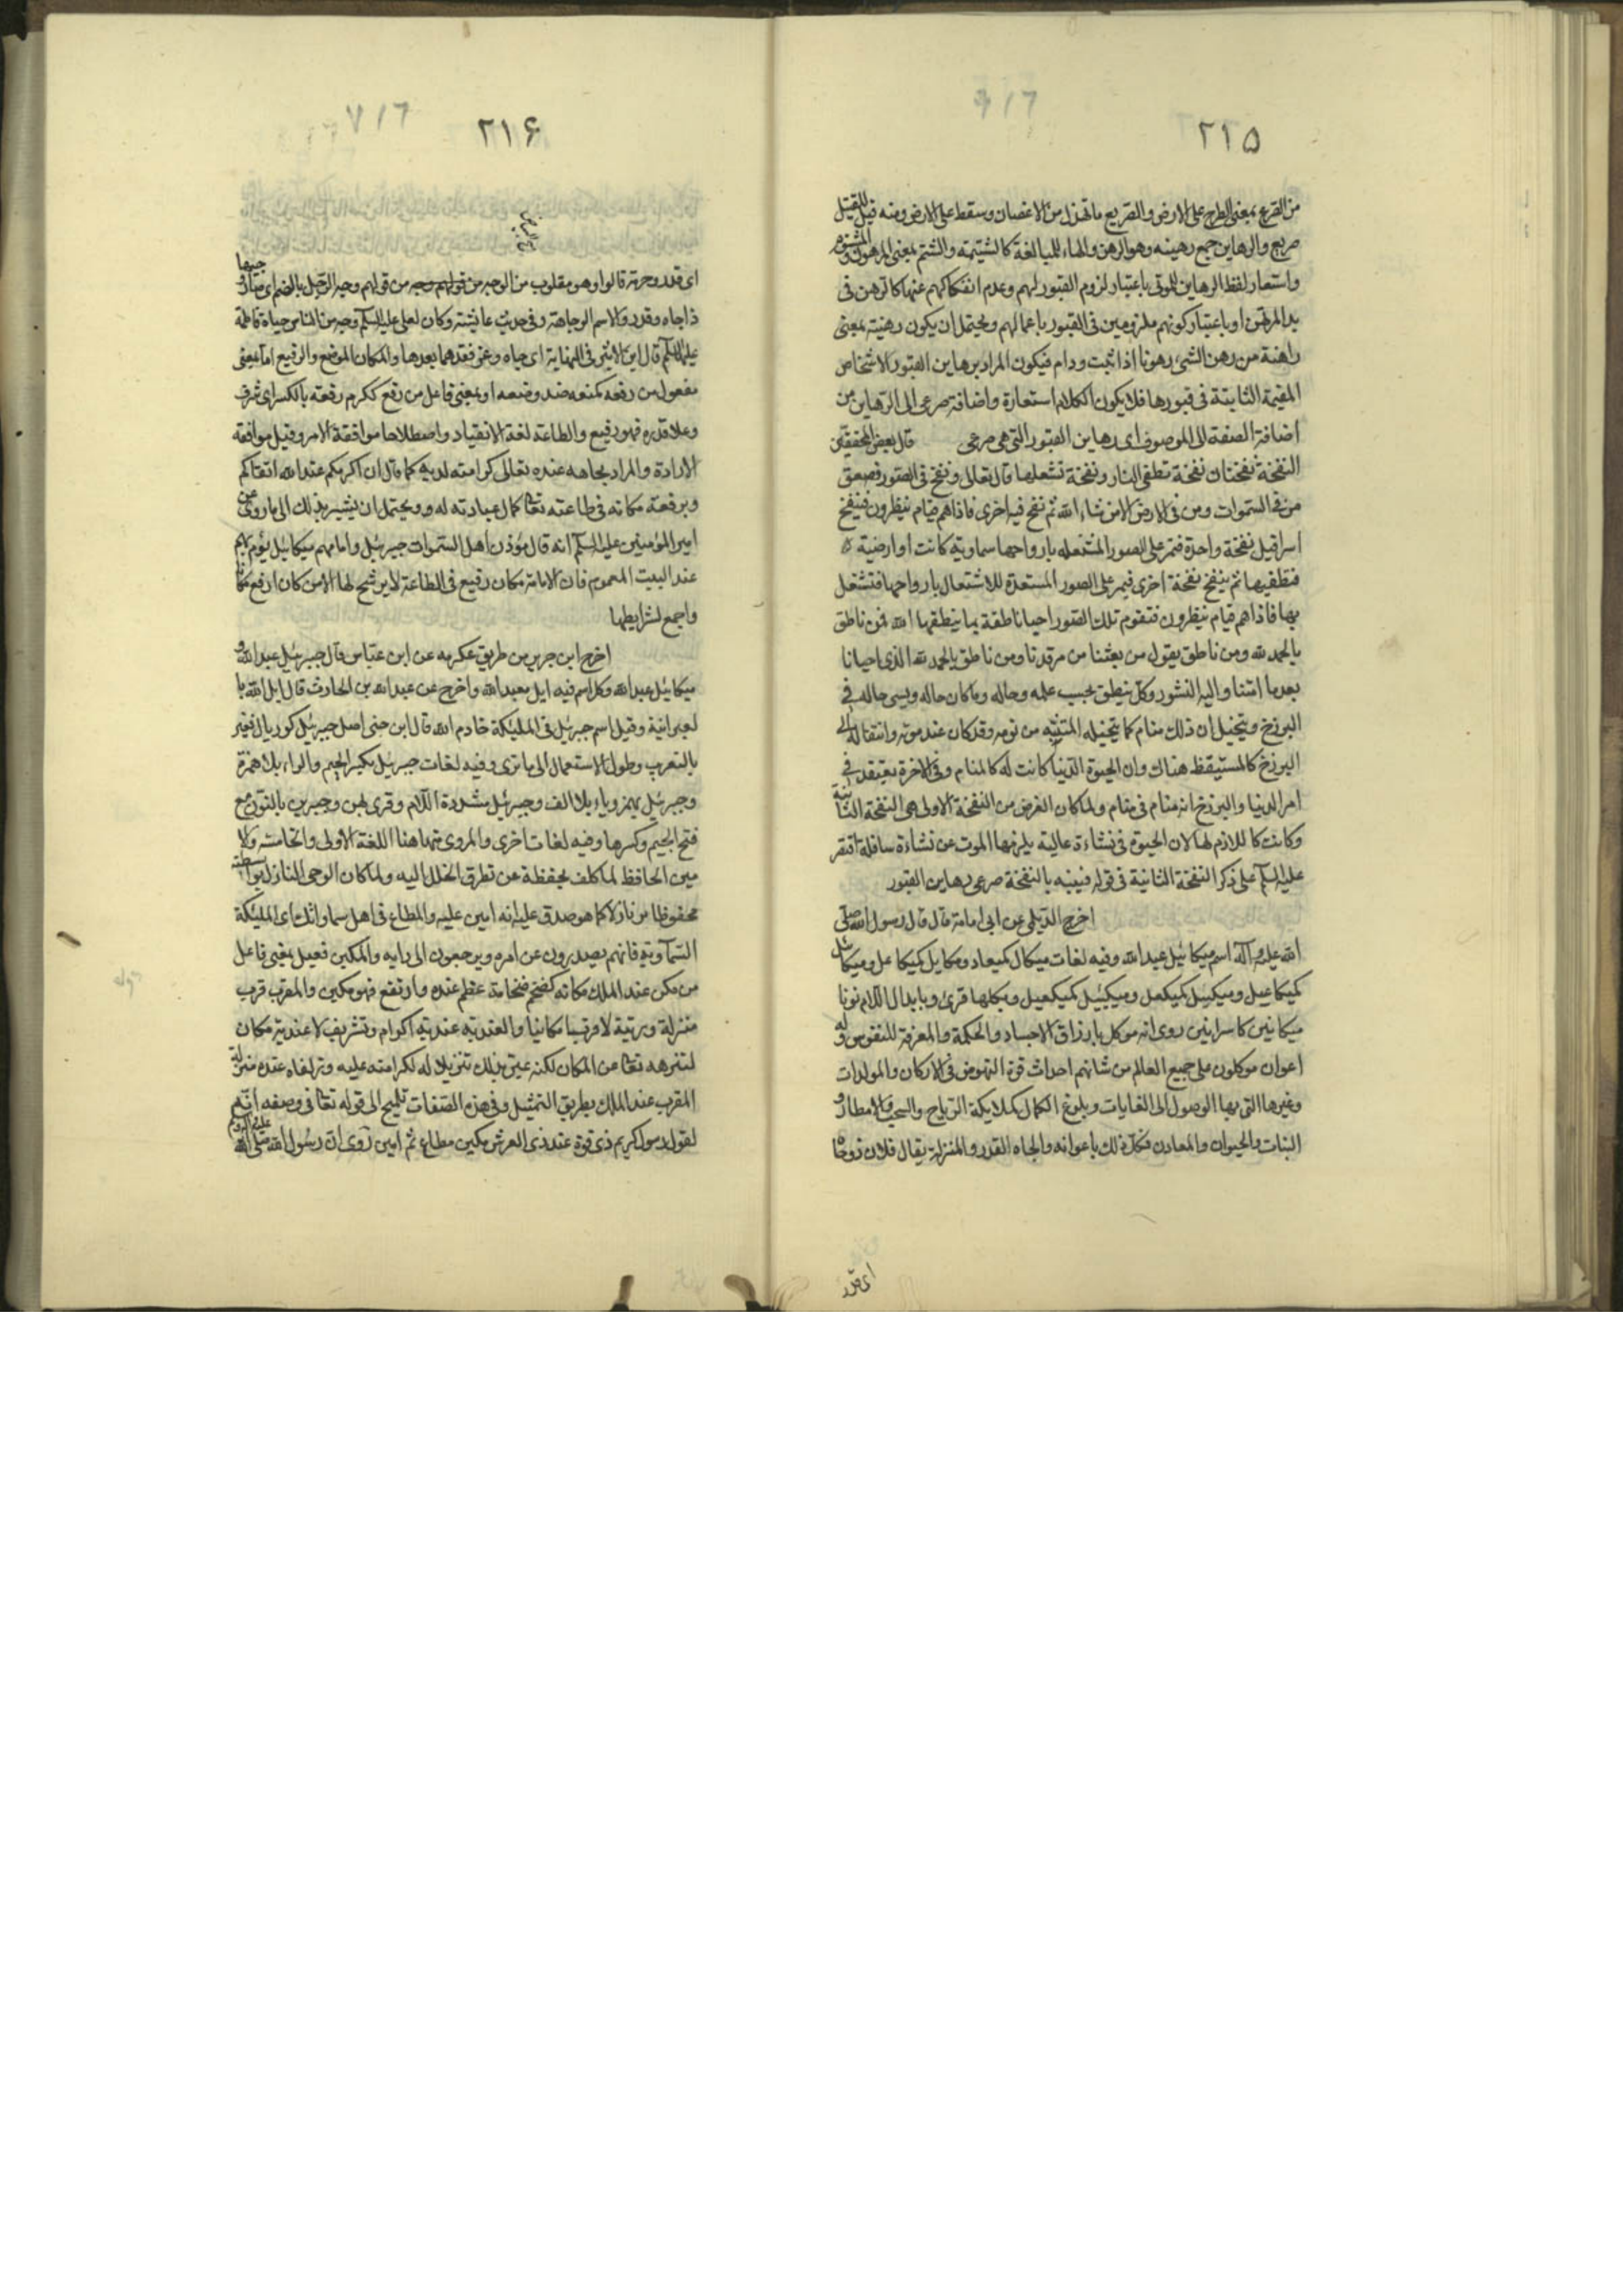 ٢١۵
من الصرع بمعنى الطرح على الارض والصريع ما تهدل من الاغصان وسقط على الارض ومنه قيل للقتيل
صريع والرهاين جمع رهينه وهو الرهن والهاء للمبالغة كالشتيمة والشتم بمعنى المرهون والمشتوم
واستعار لفظ الرهاين للموتى باعتبار لزوم القبور لهم وعدم انفكاكهم عنها كالرهن فى
يد المرتهن او باعتبار كونهم ملزومين فى القبور باعمالهم ويحتمل ان يكون رهنية بمعنى
راهنة من رهن الشىء رهونا اذا ثبت ودام فيكون المراد برهاين القبور الاشخاص
المقيمة الثابتة فى قبورها فلا يكون الكلام استعارة واضافة صرعى الى الرهاين من
اضافة الصفة الى الموصوف اى رهاين القبور التى هى صرعى قال بعض المحققين
النفخة نفختان نفخة تطفى النار ونفخة تشعلها قال تعالى ونفخ فى الصور فصعق
من فى السموات ومن فى الارض الا من شاء الله ثم نفخ فيه اخرى فاذا هم قيام ينظرون فينفخ
اسرافيل نفخة واحدة فتمر على الصور المشتعله بارواحها سماوية كانت او ارضية
فتطفيها ثم ينفخ نفخة اخرى فيمر على الصور المستعدة للاشتعال بارواحها فتشتعل
بها فاذا هم قيام ينظرون فتقوم تلك الصور احياء ناطقة بما ينطقها الله فمن ناطق
بالحمد لله ومن ناطق يقول من بعثنا من مرقدنا ومن ناطق بالحمد لله الذى احيانا
بعدما امتنا واليه النشور وكل ينطق بحسب علمه وحاله وما كان حاله وينسى حاله فى
البرزخ ويتخيل ان ذلك منام كما يتخيله المتنبه من نومه وقد كان عند موته وانتقاله الى
البرزخ كالمستيقظ هناك وان الحيوة الدنيا كانت له كالمنام وفى الاخرة يعتقد فى
امر الدنيا والبرزخ انه منام فى منام ولما كان الغرض من النفخة الاولى هى النفخة الثانية
وكانت كاللازم لها لان الحيوة فى نشاءة عالية يلزمها الموت عن نشاءة سافلة اقتصر
عليه السلم على ذكر النفخة الثانية فى قوله فينبه بالنفخة صرعى رهاين القبور
اخرج الديلمى عن ابى امامة قال قال رسول الله صلى
الله عليه وآله اسم ميكائيل عبيد الله وفيه لغات ميكال كميعاد وميكايل كميكاعل وميكائيل
كميكاعيل وميكئل كميكعل وميكئيل كميكعيل وبكلها قرئ وبابدال اللام نونا
ميكائين كاسرائين روى انه موكل بارزاق الاجساد والحكمة والمعرفة للنفوس وله
اعوان موكلون على جميع العالم من شانهم احداث قوة النهوض فى الاركان والمولدات
وغيرها التى بها الوصول الى الغايات وبلوغ الكمال كملايكة الرياح والسحب والامطار و
النبات والحيوان والمعادن فكل ذلك باعوانه والجاه القدر والمنزلة يقال فلان ذو جاه
اى قدر
٢١۶
اى قدر وحرمة قالوا وهو مقلوب من الوجه من قولهم وجه من قولهم وجه الرجل بالضم اى صار وجيها
ذا جاه وقدر والاسم الوجاهة وفى حديث عايشة وكان لعلى عليه السلم وجه من الناس حياة فاطمة
عليها السلم قال ابن الاثير فى النهاية اى جاه وعز فقدهما بعدها والمكان الموضع والرفيع اما بمعنى
مفعول من رفعه كمنعه ضد وضعه او بمعنى فاعل من رفع ككرم رفعة بالكسر اى شرف
وعلا قدره فهو رفيع والطاعة لغة الانقياد واصطلاحا موافقة الامر وقيل موافقة
الارادة والمراد بجاهه عنده تعالى كرامته لديه كما قال ان اكرمكم عند الله اتقاكم
وبرفعة مكانه فى طاعته تعالى كمال عبادته له ويحتمل ان يشير بذلك الى ما روى عن
امير المؤمنين عليه السلم انه قال مؤذن اهل السموات جبرئيل وامامهم ميكائيل يؤم بهم
عند البيت المعمور فان الامامة مكان رفيع فى الطاعة لا يرشح لها الا من كان ارفع مكانا
واجمع لشرايطها
اخرج ابن جرير من طريق عكرمه عن ابن عباس قال جبرئيل عبد الله و
ميكائيل عبيد الله وكل اسم فيه ايل معبد الله واخرج عن عبد الله بن الحارث قال ايل الله با
لعبرانية وقيل اسم جبرئيل فى المليكة خادم الله قال ابن جنى اصل جبرئيل كوريال فغير
بالتعريب وطول الاستعمال الى ما ترى وفيه لغات جبريل بكسر الجيم والراء بلا همزة
وجبرئيل بهمز وياء بلا الف وجبرئل مشددة اللام وقرئ بهن وجبرين بالنون مع
فتح الجيم وكسرها وفيه لغات اخرى والمروى منها هنا اللغة الاولى والخامسة والا
مين الحافظ لما كلف بحفظة عن تطرق الخلل اليه ولما كان الوحى النازل بواسطته
محفوظا من نازلا كما هو صدق عليه انه امين عليه والمطاع فى اهل سماواتك اى المليكة
السماوية فانهم يصدرون عن امره ويرجعون الى رايه والمكين فعيل بمعنى فاعل
من مكن عند الملك مكانه كضخم ضخامة عظم عنده وارتفع فهو مكين والمقرب قرب
منزلة ورتبة لا قربا مكانيا والعندية عندية اكرام وتشريف لا عندية مكان
لتنزهه تعالى عن المكان لكنه عبر بذلك تنزيلا له لكرامته عليه وزلفاه عنده منزلة
المقرب عند الملك بطريق التمثيل وفى هذه الصفات تلميح الى قوله تعالى فى وصفه انه
لقول رسول كريم ذى قوة عند ذى العرش مكين مطاع ثم امين روى ان رسول الله صلى الله